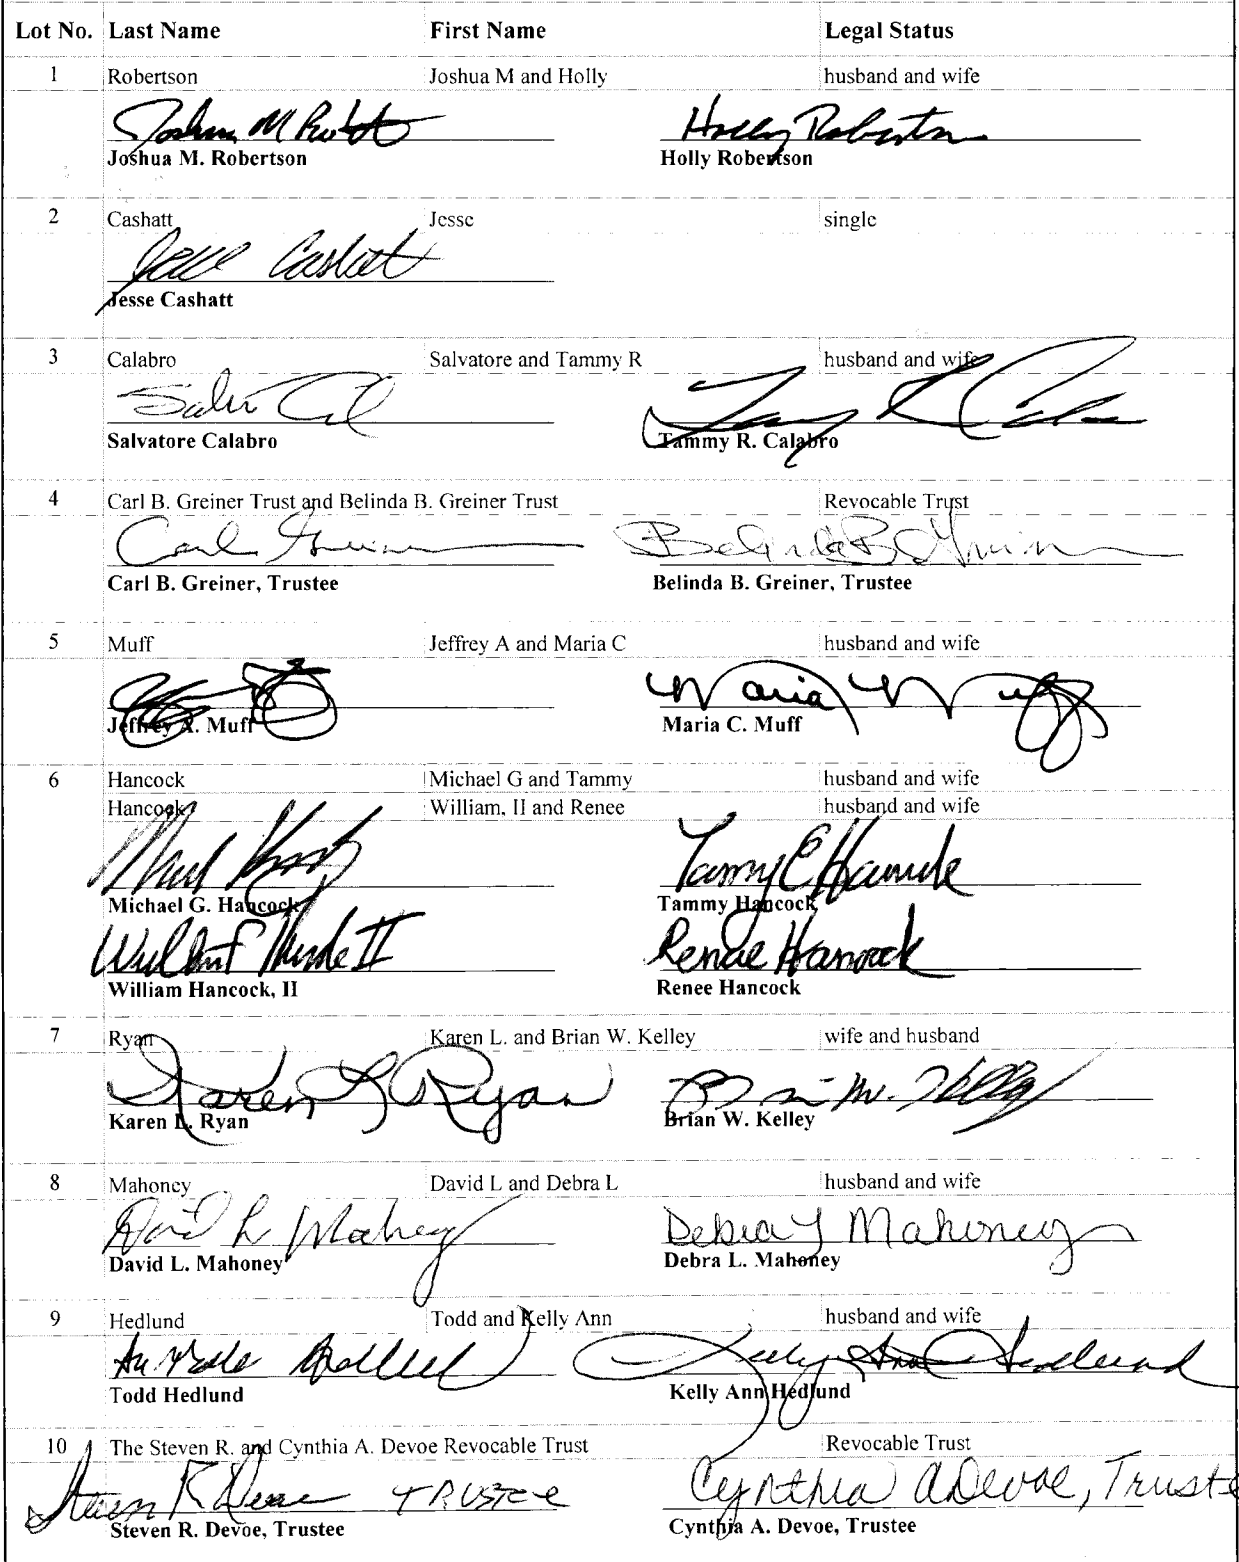 Lot No. Last Name First Name Legal Status
1 Robertson Joshua M and Holly husband and wife
Joshua M Holly Robertson
Joshua M. Robertson Holly Robertson
2 Cashatt Jesse single
Jesse Cashatt
Jesse Cashatt
3 Calabro Salvatore and Tammy R husband and wife
Salvatore Calabro Tammy R. Calabro
4 Carl B. Greiner Trust and Belinda B. Greiner Trust Revocable Trust
Carl Greiner Belinda B Greiner
Carl B. Greiner, Trustee Belinda B. Greiner, Trustee
5 Muff Jeffrey A and Maria C husband and wife
Maria Muff
Jeffrey A. Muff Maria C. Muff
6 Hancock Michael G and Tammy husband and wife
Hancock William, II and Renee husband and wife
Tammy E Hancock
Michael G. Hancock Tammy Hancock
II Renee Hancock
William Hancock, II Renee Hancock
7 Ryan Karen L. and Brian W. Kelley wife and husband
Karen L Ryan Brian W. Kelley
Karen L. Ryan Brian W. Kelley
8 Mahoney David L and Debra L husband and wife
David L Mahoney Debra L Mahoney
David L. Mahoney Debra L. Mahoney
9 Hedlund Todd and Kelly Ann husband and wife
Kelly Ann Hedlund
Todd Hedlund Kelly Ann Hedlund
10 The Steven R. and Cynthia A. Devoe Revocable Trust Revocable Trust
Steven R Devoe TRUSTEE Cynthia A Devoe, Truste
Steven R. Devoe, Trustee Cynthia A. Devoe, Trustee